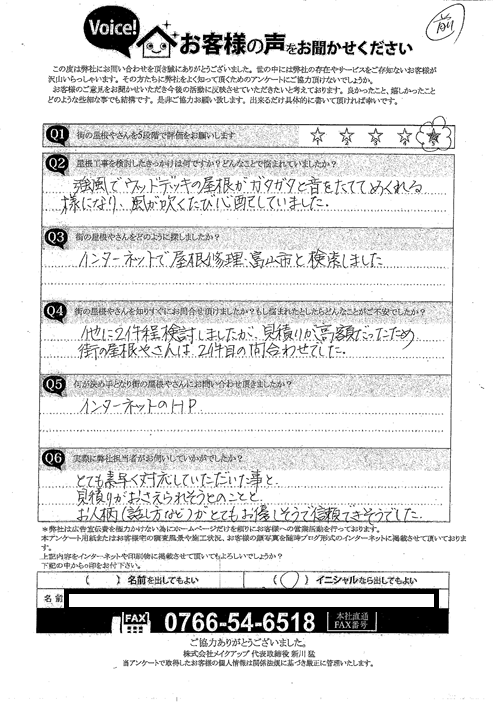 前
Voice!
お客様の声をお聞かせください
この度は弊社にお問い合わせを頂き誠にありがとうございました。世の中には弊社の存在やサービスをご存知ないお客様が
沢山いらっしゃいます。その方たちに弊社をよく知って頂くためのアンケートにご協力頂けないでしょうか。
お客様のご意見をお聞かせいただき今後の活動に反映させていただきたいと考えております。良かったこと、嬉しかったこと
どのような些細な事でも結構です。是非ご協力お願い致します。出来るだけ具体的に書いて頂ければ幸いです。
Q1 街の屋根やさんを5段階で評価をお願いします
Q2 屋根工事を検討したきっかけは何ですか？どんなことで悩まれていましたか？
強風でウッドデッキの屋根がガタガタと音をたててめくれる
様になり、風が吹くたび心配していました。
Q3 街の屋根やさんをどのように探しましたか？
インターネットで屋根修理・富山市と検索しました
Q4 街の屋根やさんを知りすぐにお問合せ頂けましたか？もし悩まれたとしたらどんなことがご不安でしたか？
他に2件程検討しましたが、見積りが高額だったため
街の屋根やさんは、2件目の問合わせでした。
Q5 何が決め手となり街の屋根やさんにお問い合わせ頂きましたか？
インターネットのHP
Q6 実際に弊社担当者がお伺いしていかがでしたか？
とても素早く対応していただいた事と、
見積りがおさえられそうとのことと、
お人柄(話し方など)がとてもお優しそうで信頼できそうでした。
＊弊社は広告宣伝費を極力かけない為にホームページだけを頼りにお客様への営業活動を行っております。
本アンケート用紙またはお客様宅の調査風景や施工状況、お客様の顔写真を随時ブログ形式のインターネットに掲載させて頂いておりま
す。
上記内容をインターネットや印刷物に掲載させて頂いてもよろしいでしょうか？
下記の中から○印をお付下さい。
(　) 名前を出してもよい　(○) イニシャルなら出してもよい
名前
FAX 0766-54-6518 本社直通 FAX番号
ご協力ありがとうございました。
株式会社メイクアップ 代表取締役 新川 猛
当アンケートで取得したお客様の個人情報は関係法規に基づき厳正に管理いたします。